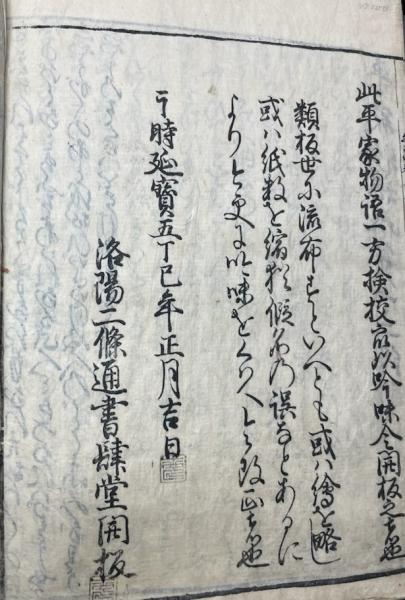 此平家物語一方検校衆以吟味令開板之者也
類板世に流布すといへとも或ハ繪を略し
或ハ紙数を縮め假名の誤なとあるに
よりて今更に吟味をくハへて改正者也
于時延寶五丁巳年正月吉日
洛陽二條通書肆堂開板